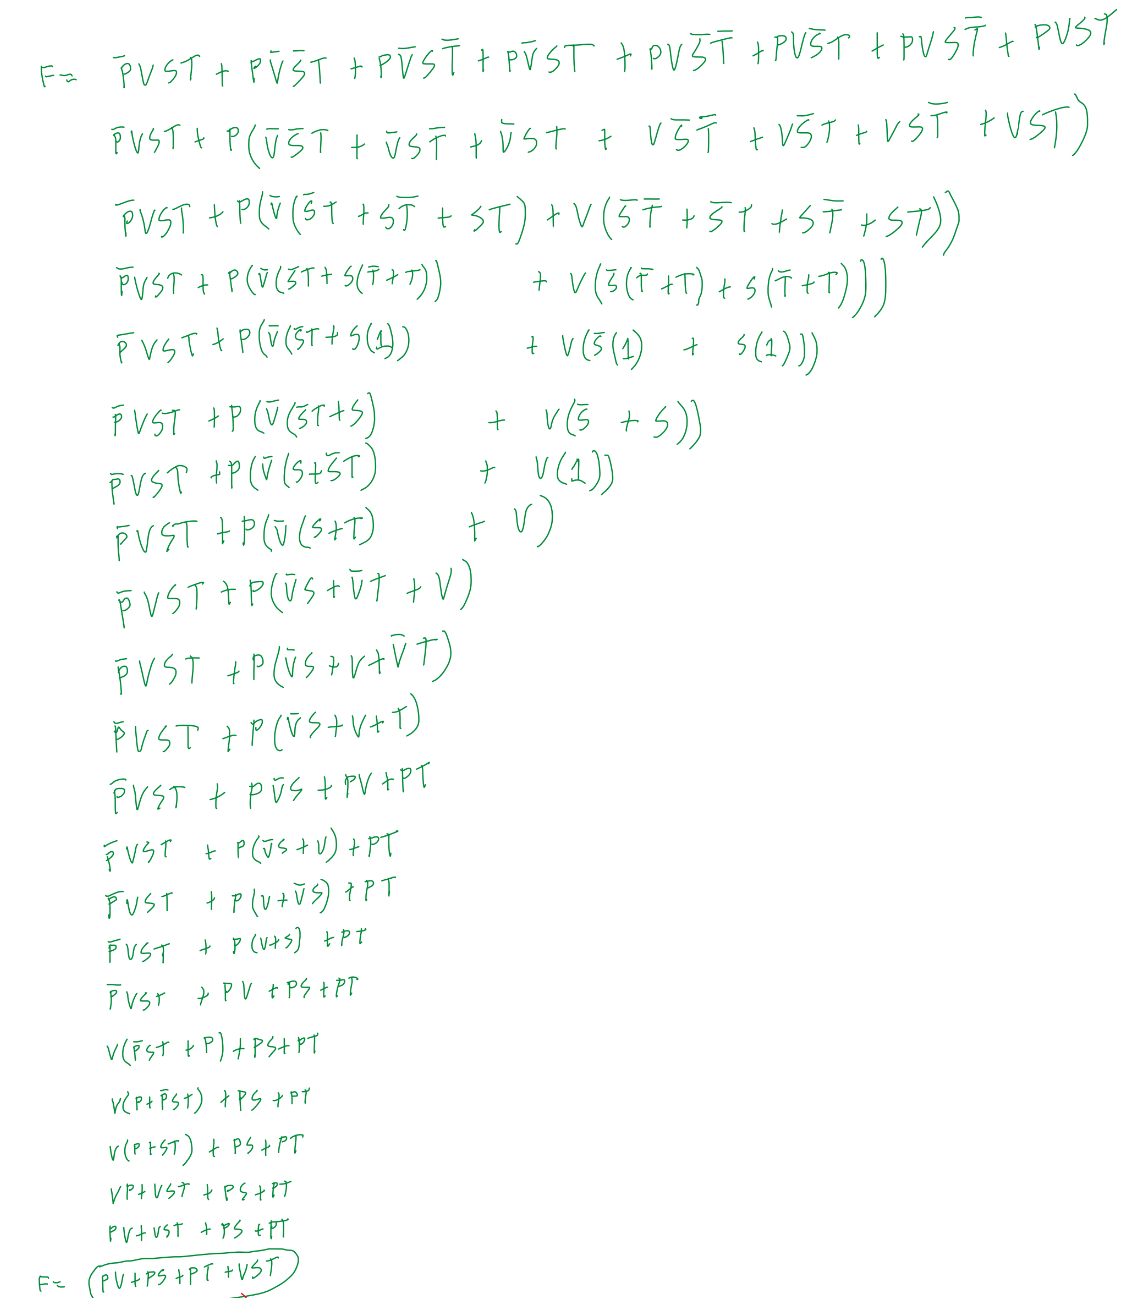 F= P̅VST + PV̅S̅T + PV̅ST̅ + PV̅ST + PVS̅T̅ + PVS̅T + PVST̅ + PVST
P̅VST + P(V̅S̅T + V̅ST̅ + V̅ST + VS̅T̅ + VS̅T + VST̅ + VST)
P̅VST + P(V̅(S̅T + ST̅ + ST) + V(S̅T̅ + S̅T + ST̅ + ST))
P̅VST + P(V̅(S̅T + S(T̅+T)) + V(S̅(T̅+T) + S(T̅+T))))
P̅VST + P(V̅(S̅T + S(1)) + V(S̅(1) + S(1)))
P̅VST + P(V̅(S̅T+S) + V(S̅ + S))
P̅VST + P(V̅(S+S̅T) + V(1))
P̅VST + P(V̅(S+T) + V)
P̅VST + P(V̅S + V̅T + V)
P̅VST + P(V̅S + V + V̅T)
P̅VST + P(V̅S + V + T)
P̅VST + PV̅S + PV + PT
P̅VST + P(V̅S + V) + PT
P̅VST + P(V + V̅S) + PT
P̅VST + P(V+S) + PT
P̅VST + PV + PS + PT
V(P̅ST + P) + PS + PT
V(P + P̅ST) + PS + PT
V(P + ST) + PS + PT
VP + VST + PS + PT
PV + VST + PS + PT
F= PV + PS + PT + VST